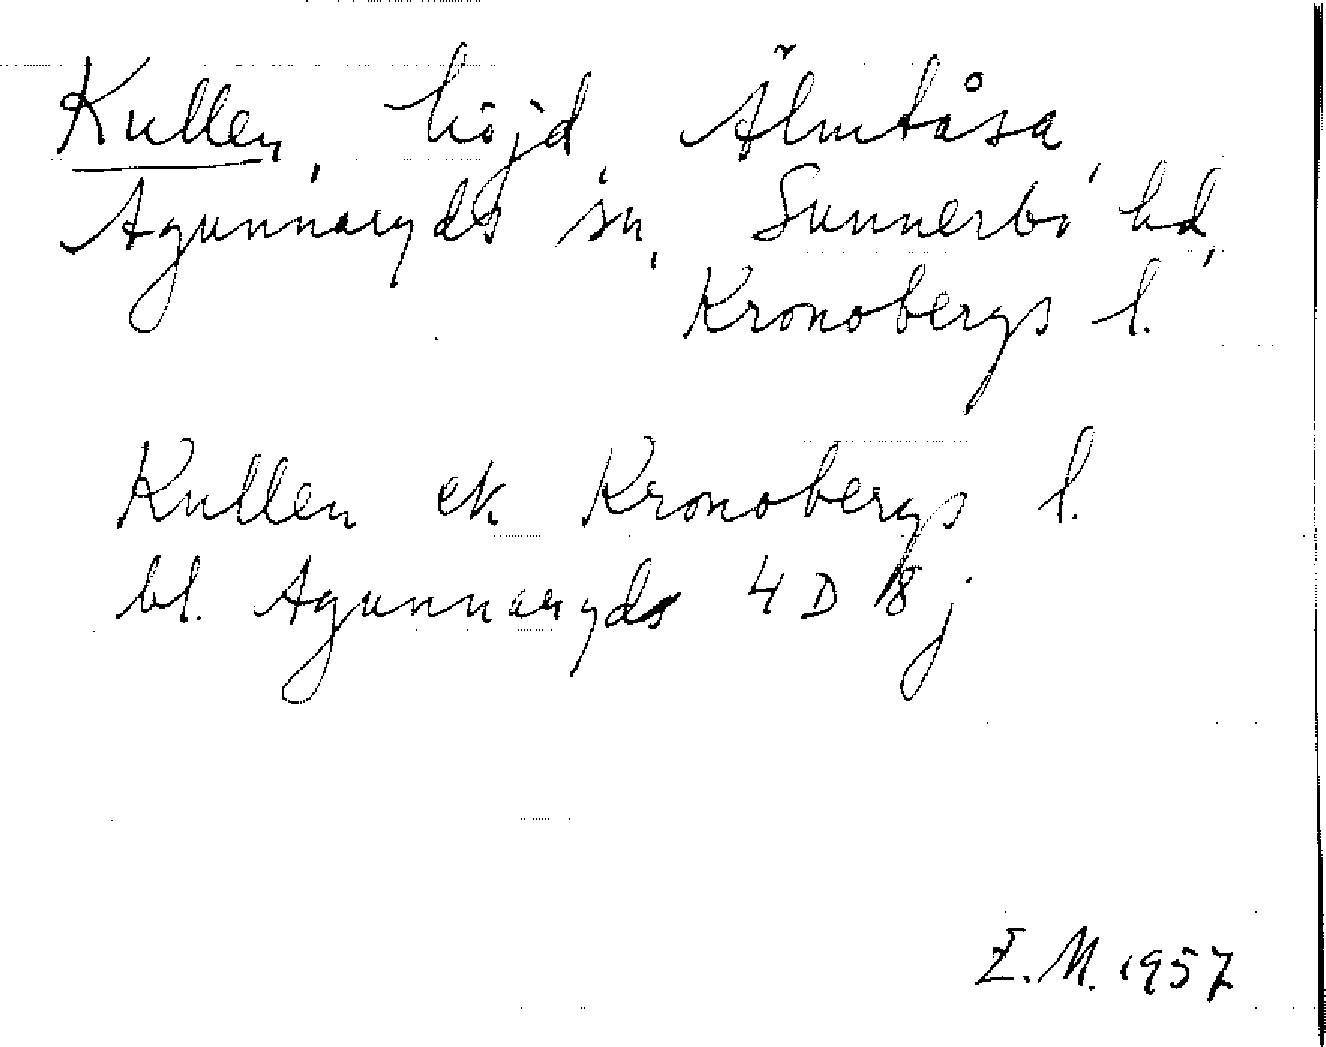 Kullen, höjd, Älmtåsa,
Agunnaryds sn, Sunnerbo hd,
Kronobergs l.
Kullen ek Kronobergs l.
bl. Agunnaryds 4 D 8 j
E. M. 1957